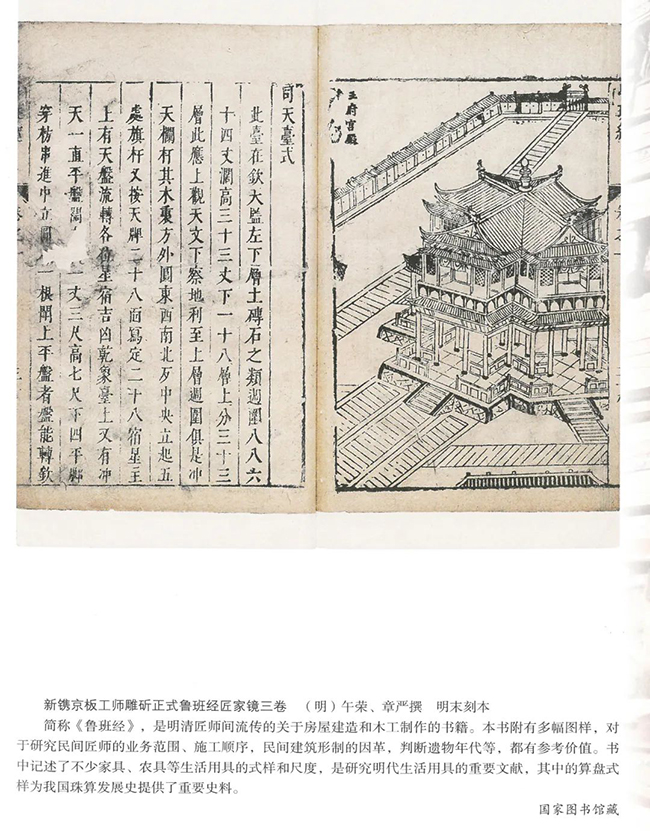 王府宫殿
司天臺式
此臺在欽天監左下層土磚石之類週圍八八六
十四丈濶高三十三丈下一十八層上分三十三
層此應上觀天文下察地利至上層週圍俱是冲
天欄杆其木裏方外圓東西南北及中央立起五
處旗杆又按天牌二十八面寫定二十八宿星主
上有天盤流轉各位星宿吉凶乾象臺上又有冲
天一直平盤濶 一丈三尺高七尺下四平脚
穿枋串進中立圓 一根閗上平盤者盤能轉欽
新镌京板工师雕斫正式鲁班经匠家镜三卷 （明）午荣、章严撰 明末刻本
简称《鲁班经》，是明清匠师间流传的关于房屋建造和木工制作的书籍。本书附有多幅图样，对
于研究民间匠师的业务范围、施工顺序，民间建筑形制的因革，判断遗物年代等，都有参考价值。书
中记述了不少家具、农具等生活用具的式样和尺度，是研究明代生活用具的重要文献，其中的算盘式
样为我国珠算发展史提供了重要史料。
国家图书馆藏